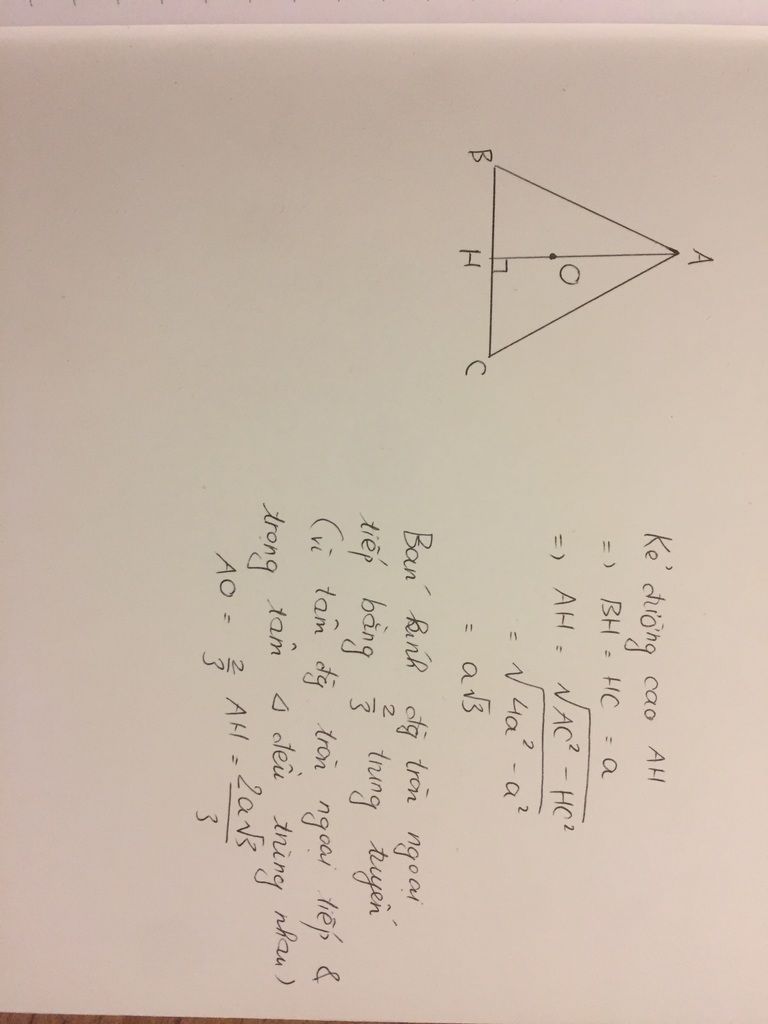 A
O
B
H
C
Kẻ đường cao AH
=) BH = HC = a
=) AH = √AC² - HC²
= √4a² - a²
= a√3
Bán kính đg tròn ngoại
tiếp bằng 2/3 trung tuyến
(vì tâm đg tròn ngoại tiếp &
trọng tâm Δ đều trùng nhau)
AO = 2/3 AH = 2a√3/3